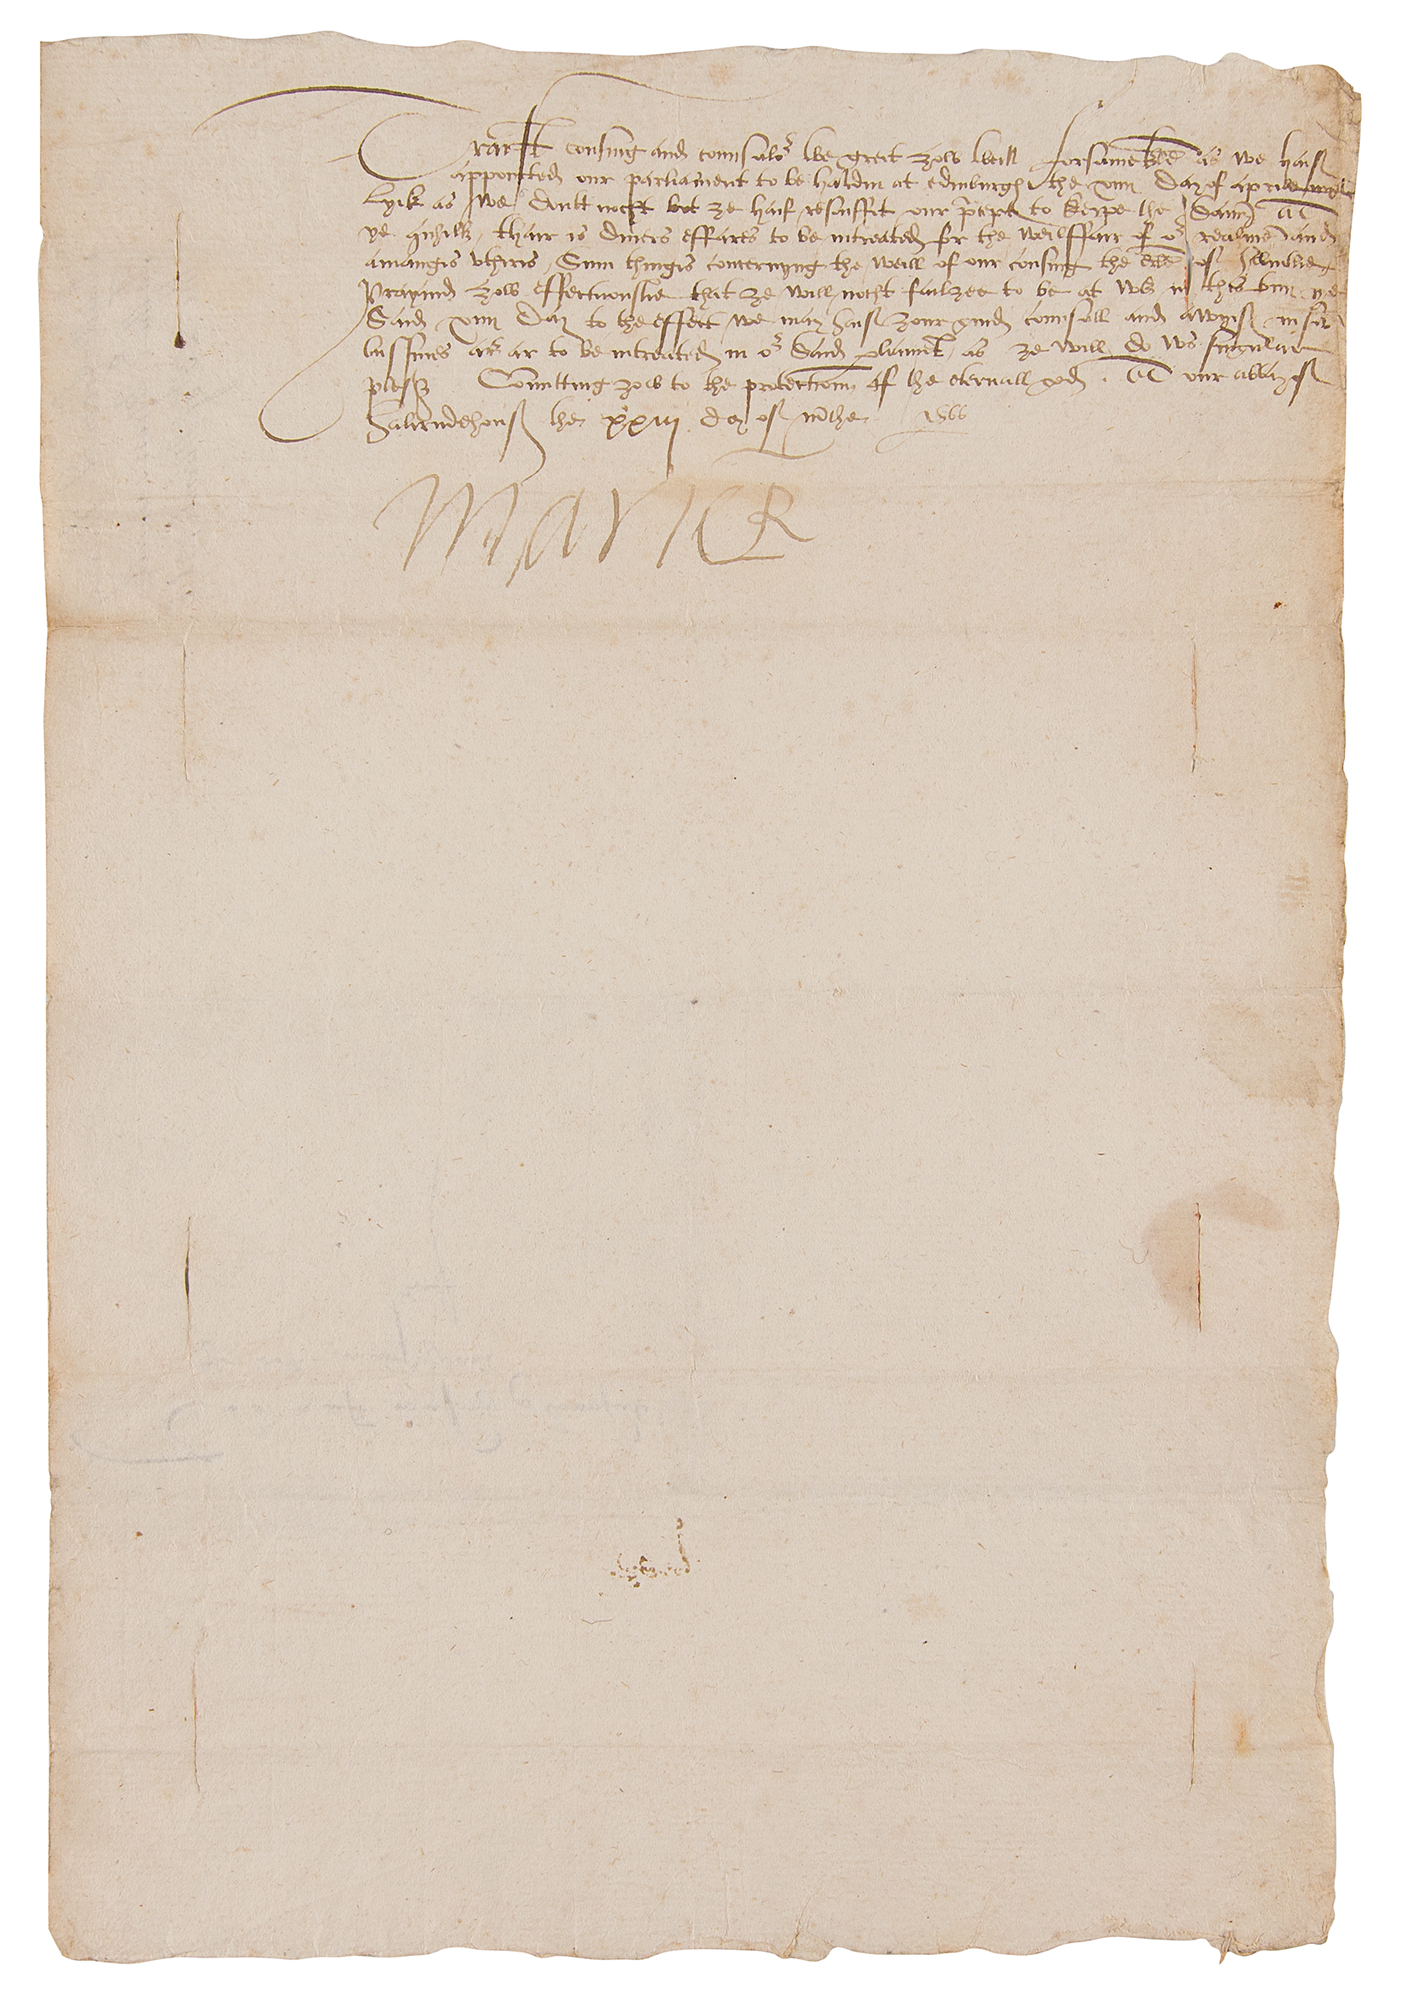 Traist cousing and counsalor we greit zow weill forsamekle as we haif
appointed our parliament to be haldin at edinburgh the xiiii day of aprile nixt
Lyik as we doutt nocht bot ze haif resauffit our precept to keipe the samin At
ye quhilk thair is diuers effares to be intreated for the weilffair of or realme and
amangis vtheris Sum thingis concernyng the weill of our cousing the erle of huntlie
Prayand zow effectuouslie that ze will nocht failzee to be at ws in this tun ye
Said xiiii Day to the effect we may haif zour guid counsall and awyis in sic
bussines as ar to be intreated in or Said parliament as ze will do ws singular
plesr Committing zow to the protectioun of the eternall god. At our abbay of
halierudehous the xxiii day of marche 1566
Marie R